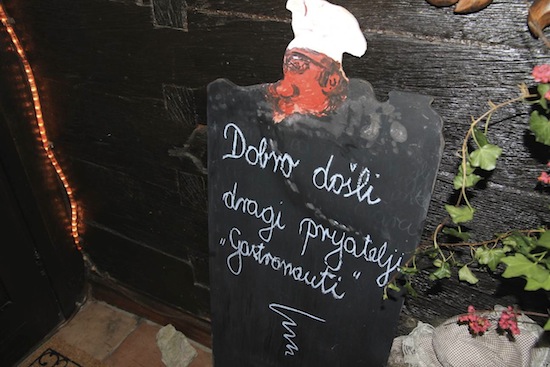 Dobro došli
dragi prijatelji
„Gastronauti"